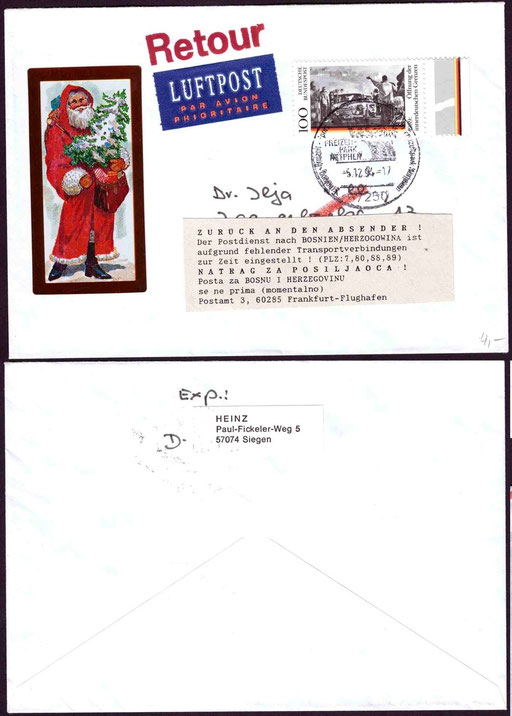 Retour
LUFTPOST
PAR AVION
PRIORITAIRE
DEUTSCHE
BUNDESPOST
100
Öffnung der
innerdeutschen Grenzen
FREIZEIT-
PARK
NETPHEN
-5.12.94-17
Dr. Ilja
13
ZURÜCK AN DEN ABSENDER !
Der Postdienst nach BOSNIEN/HERZOGOWINA ist
aufgrund fehlender Transportverbindungen
zur Zeit eingestellt ! (PLZ:7,80,88,89)
NATRAG ZA POSILJAOCA !
Posta za BOSNU I HERZEGOVINU
se ne prima (momentalno)
Postamt 3, 60285 Frankfurt-Flughafen
4,-
Exp.:
HEINZ
Paul-Fickeler-Weg 5
D-
57074 Siegen